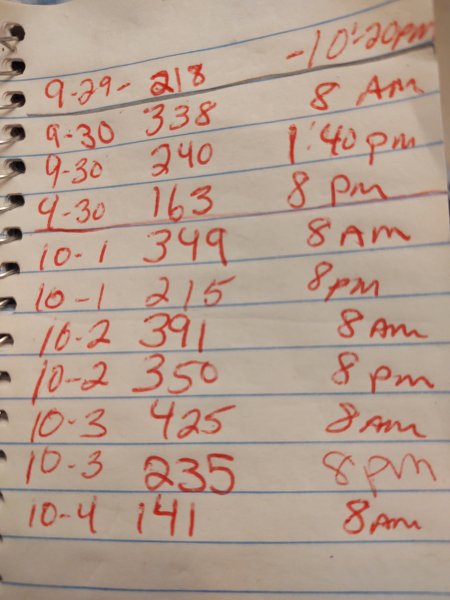 9-29- 218 -10:20pm
9-30 338 8 AM
9-30 240 1:40 pm
9-30 163 8 pm
10-1 349 8 AM
10-1 215 8pm
10-2 391 8 AM
10-2 350 8 pm
10-3 425 8 AM
10-3 235 8 pm
10-4 141 8 AM